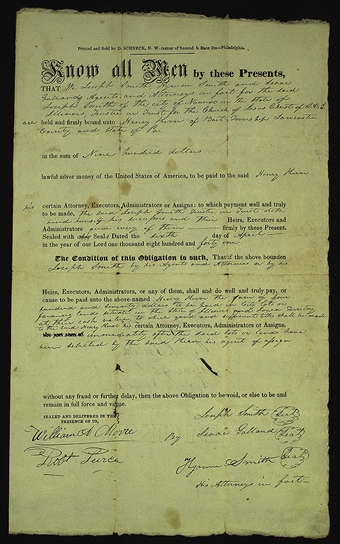 Printed and Sold by D. SCHNECK, N. W. corner of Second & Race Sts—Philadelphia.
Know all Men by these Presents,
THAT We Joseph Smith Hyrum Smith and Isaac
Galland Agents and Attorneys in fact for the said
Joseph Smith of the city of Nauvoo in the State of
Illinois, Trustee in Trust for the Church of Jesus Christ of L.D.S
are held and firmly bound unto Henry Kern of Bart Township Lancaster
County and State of Pa
in the sum of Nine hundred dollars
lawful silver money of the United States of America, to be paid to the said Henry Kern
his certain Attorney, Executors, Administrators or Assigns: to which payment well and truly
to be made, the said Joseph Smith Trustee in Trust doth
bind himself his successors and their Heirs, Executors and
Administrators and every of them firmly by these present.
Sealed with Seal Dated the sixth day of April
in the year of our Lord one thousand eight hundred and forty one
The Condition of this Obligation is such, That if the above bounden
Joseph Smith by his Agents and Attornies or by his
Heirs, Executors, Administrators, or any of them, shall and do well and truly pay, or
cause to be paid unto the above-named Henry Kern the sum of four
hundred and seventy dollars to be paid in city lots or
farming lands situated in the State of Illinois and Iowa Territory
at fair cash valley to which good and sufficient titles shall be made
to the said Henry Kern his certain Attorney, Executors, Administrators or Assigns,
immediately after the said lots or lands have
been selected by the said Kern his agent or assigns
without any fraud or further delay, then the above Obligation to be void, or else to be and
remain in full force and virtue.
SEALED AND DELIVERED IN THE
PRESENCE OF US,
Joseph Smith Seal
William A Moore
By Isaac Galland Seal
Robt Peirce
Hyrum Smith Seal
His Attorneys in fact